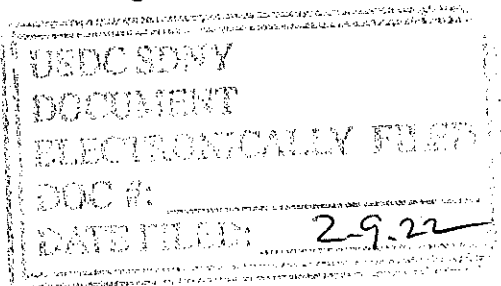 USDC SDNY
DOCUMENT
ELECTRONICALLY FILED
DOC #:
DATE FILED: 2-9-22